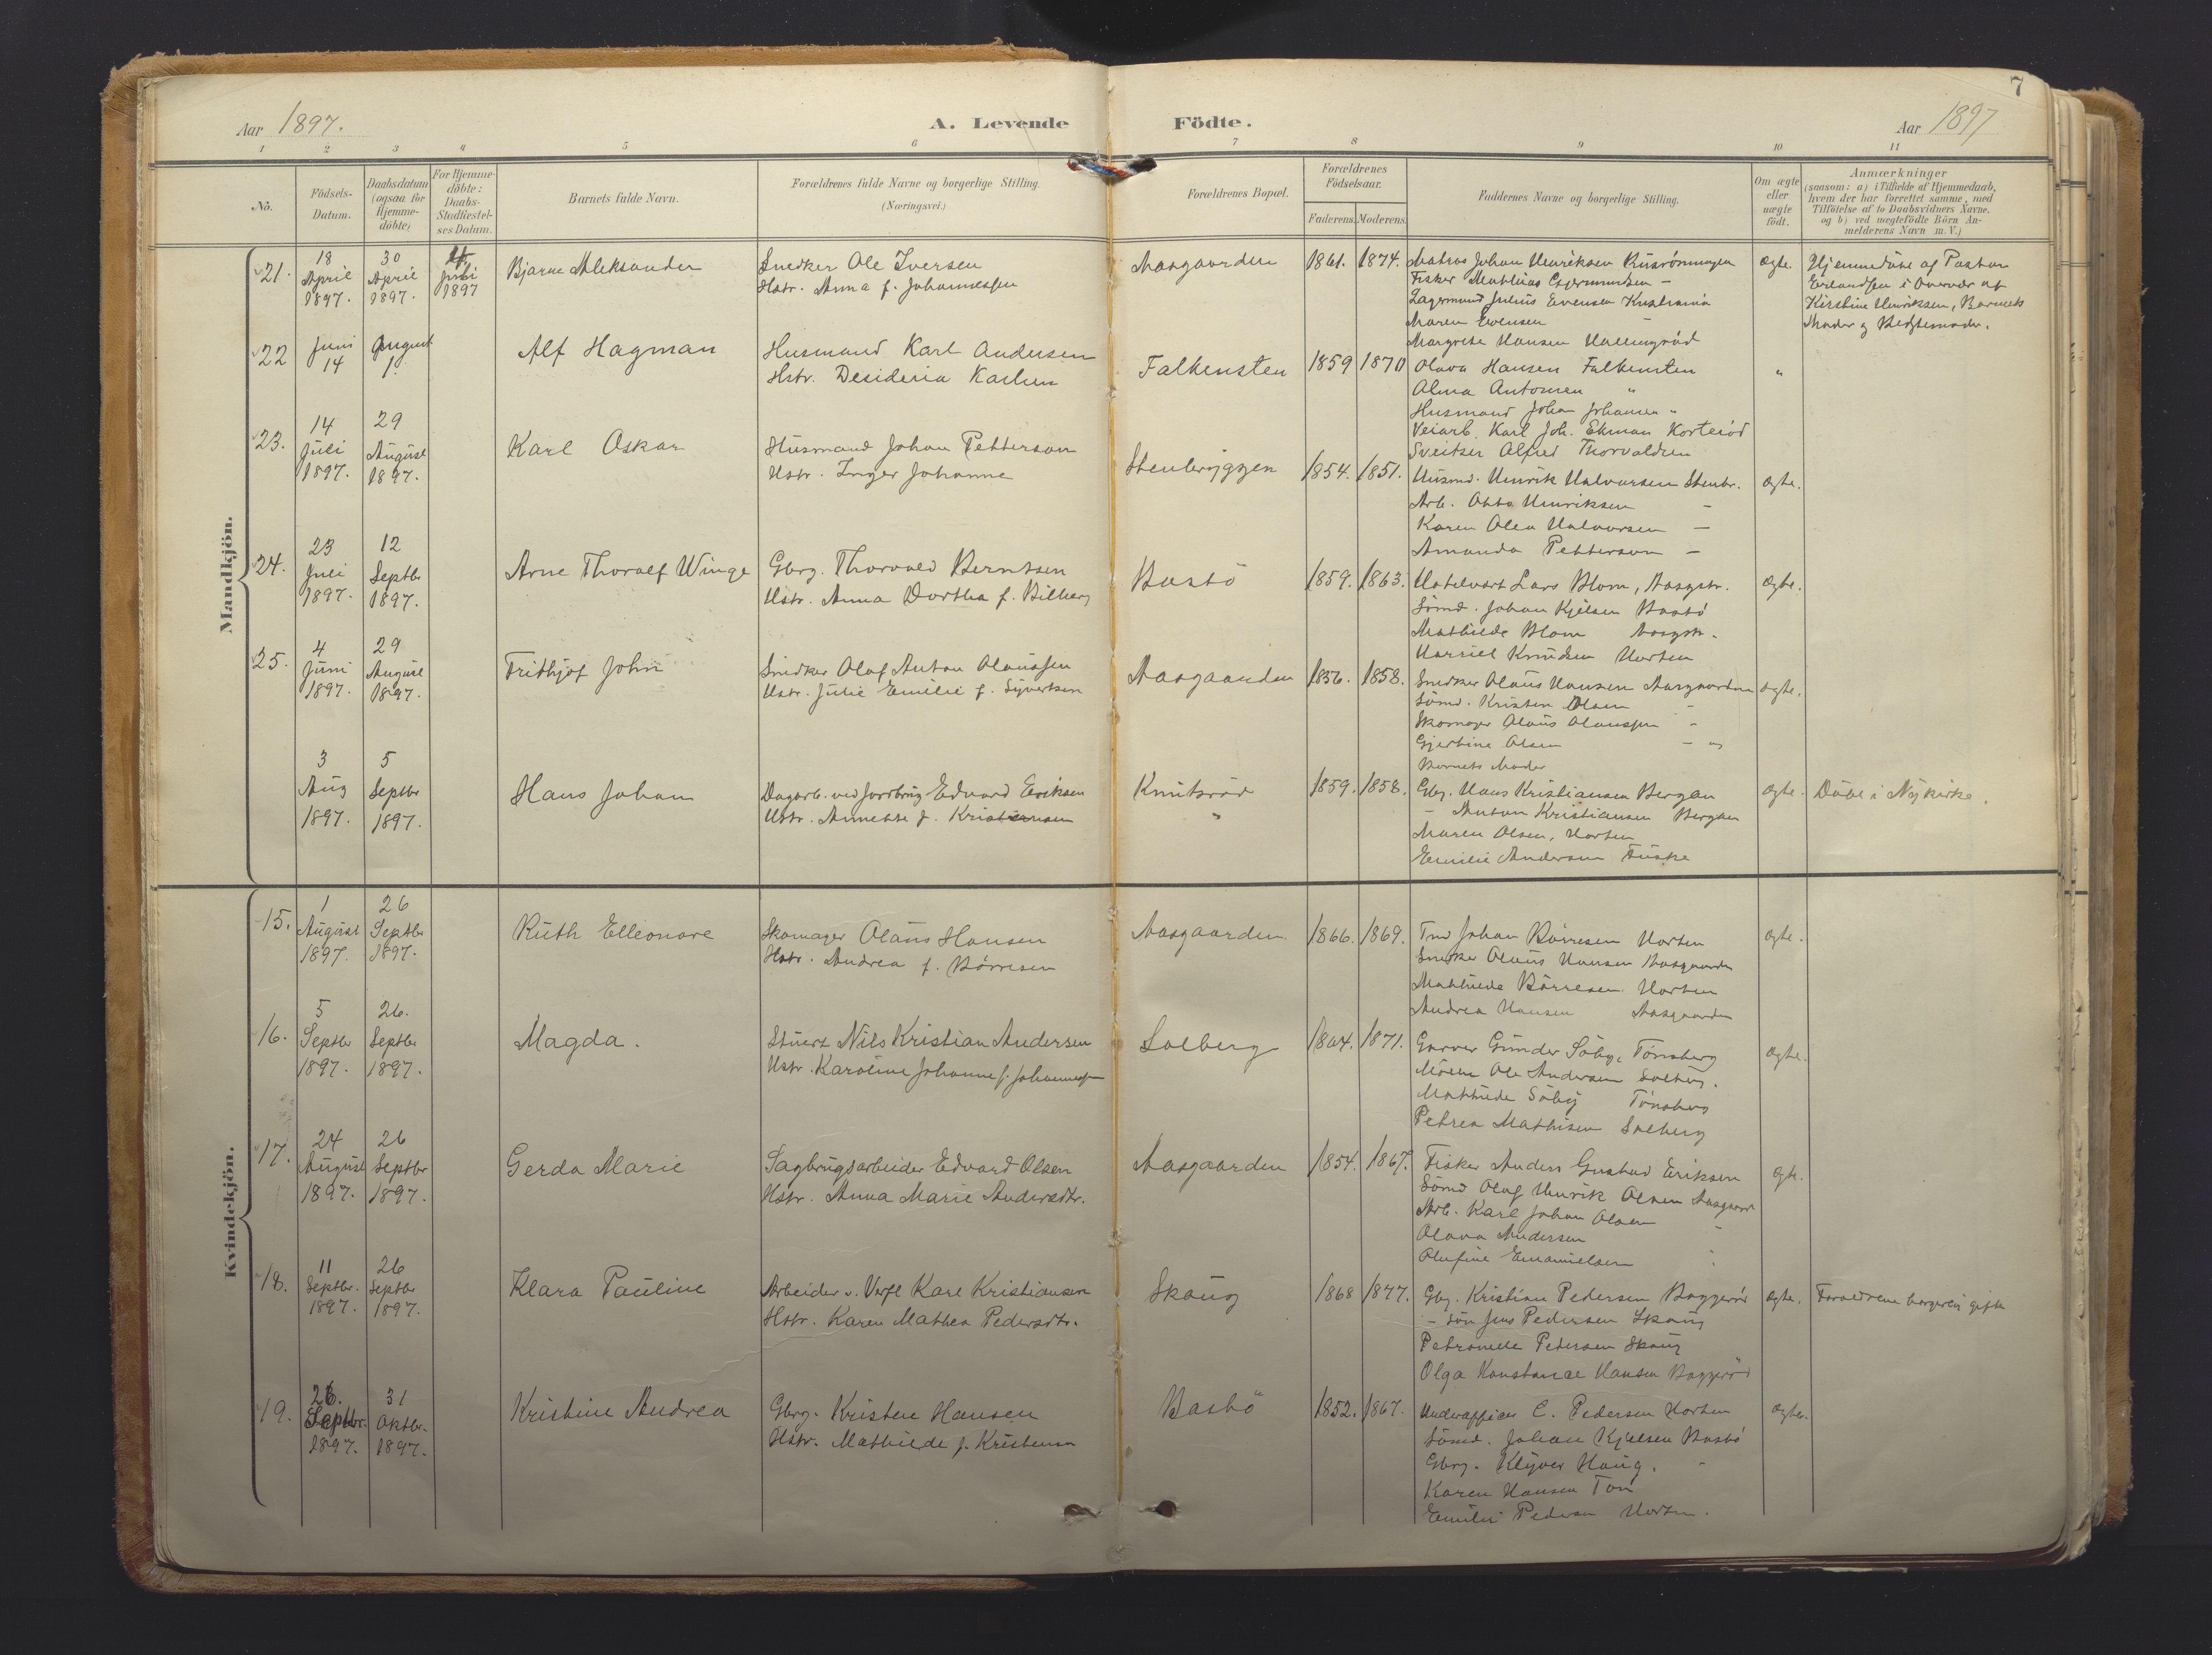 7
Aar 1897.
A. Levende Födte.
Aar 1897
1 2 3 4 5 6 7 8 9 10 11
No.
Födsels-Datum.
Daabsdatum (ogsaa for Hjemme-döbte)
For Hjemme-döbte: Daabs-Stadfæstel-ses Datum.
Barnets fulde Navn.
Forældrenes fulde Navne og borgerlige Stilling. (Næringsvei.)
Forældrenes Bopæl.
Forældrenes Födselsaar.
Faderens. Moderens.
Faddernes Navne og borgerlige Stilling.
Om ægte eller uægte födt.
Anmærkninger
(saasom: a) i Tilfælde af Hjemmedaab,
hvem der har forrettet samme, med
Tilföielse af to Daabsvidners Navne,
og b) ved uægtefödte Börn An-
melderens Navn m. V.)
Mandkjön.
21.
18 April 1897.
30 April 1897.
Juli 1897
Bjarne Aleksander
Snedker Ole Iversen
Hstr. Anna f. Johannessen
Aasgaarden
1861. 1874.
Matros Johan Henriksen
Fisker Mathias
Lagermand Julius Evensen Kristiania
Maren Evensen
Margrethe Hansen
Ægte.
Hjemmedöbt af Pastor
Erlandsen i Overvær af
Kirstine Henriksen, Barnets
Moder og Bedstemoder.
22
Juni 14
August 1.
Alf Hagman
Husmand Karl Andersen
Hstr. Desideria Karlsen
Falkensten
1859 1870
Olava Hansen Falkensten
Alma Antonsen "
Husmand Johan Johansen "
Veiarb. Karl Joh. Ekman Korteröd
Sveitser Alfred Thorvaldsen
"
23.
14 Juli 1897.
29 August 1897.
Karl Oskar
Husmand Johan Petterson
Hstr. Inger Johanne
Stenbryggen
1854. 1851.
Husmd. Henrik Halvorsen Stenbr.
Arb. Otto Henriksen -
Karen Olea Halvorsen -
Amanda Petterson -
Ægte.
24.
23 Juli 1897.
12 Septbr 1897.
Arne Thoralf Winge
Gbrg. Thorvald Berntsen
Hstr. Anna Dorthea f. Bilberg
Bastö
1859. 1863.
Hotelvært Lars Blom, Aasgstr.
Sömd. Johan Kjelsen Bastö
Mathilde Blom Aasgstr.
Harriet Knudsen Horten
Ægte.
25.
4 Juni 1897.
29 August 1897.
Frithjof John
Snedker Olaf Anton Olaussen
Hstr. Julie Emilie f. Syvertsen
Aasgaarden
1856. 1858.
Snedker Olaus Hansen Aasgaarden
Sömd. Kristen Olsen -
Skomager Olaus Olaussen -
Gjertine Olsen - "
Barnets Moder
Ægte.
3 Aug 1897.
5 Septbr 1897.
Hans Johan
Dagarb. ved Jordbrug Edvard Eriksen
Hstr. Annette f. Kristiansen
Knutsröd
"
1859. 1858.
Gbg. Hans Kristiansen Bergan
- Anton Kristiansen Bergan
Maren Olsen, Horten
Emilie Andersen Fuske
Ægte.
Döbt i Nykirke.
Kvindekjön.
15.
1 August 1897.
26 Septbr 1897.
Ruth Elleonore
Skomager Olaus Hansen
Hstr. Andrea f. Börresen
Aasgaarden
1866. 1869.
Tmd Johan Börresen Horten
Snedker Olaus Hansen Aasgaarden
Mathilde Börresen Horten
Andrea Hansen Aasgaarden
Ægte.
16.
5 Septbr 1897.
26. Septbr 1897.
Magda.
Stuert Nils Kristian Andersen
Hstr. Karoline Johanne f. Johannessen
Solberg
1864. 1871.
Garver Gunder Söby, Tönsberg
Möller Ole Andersen Solberg.
Mathilde Söby Tönsberg
Petrea Mathisen Solberg
Ægte.
17.
24 August 1897.
26 Septbr 1897.
Gerda Marie
Sagbrugsarbeider Edvard Olsen
Hstr. Anna Marie Andersdtr.
Aasgaarden
1854. 1867.
Fisker Anders Gustav Eriksen
Sömd Olaf Henrik Olsen Aasgaard
Arb. Karl Johan Olsen
Olava Andersen
Olufine Emanuelsen
Ægte.
18.
11 Septbr. 1897.
26 Septbr 1897.
Klara Pauline
Arbeider v. Verft Karl Kristiansen
Hstr. Karen Mathea Pedersdtr.
Skaug
1868 1877.
Gbg. Kristian Pedersen Baggeröd
- Sön Jens Pedersen Skaug
Petronelle Pedersen Skaug
Olga Konstance Hansen Baggeröd
Ægte.
Forældrene borgerlig gifte
19.
26. Septbr. 1897.
31 Oktbr. 1897.
Kristine Andrea
Gbrg. Kristen Hansen
Hstr. Mathilde f. Kristensen
Bastö
1852. 1867.
Underofficer C. Pedersen Horten
Sömd. Johan Kjelsen Bastö
Gbrg. Klyver Haug. -
Karen Hansen Ton
Emilie Pedersen Horten.
Ægte.